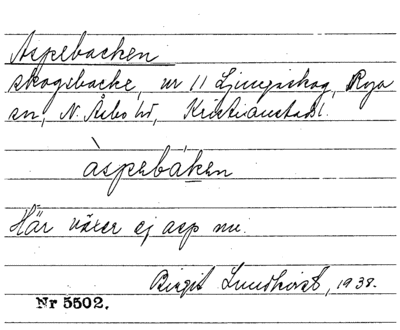 Aspebacken
skogsbacke, nr 11 Ljungskog, Röja
sn, N. Åsbo hd, Kristianstads l.
àspebáken
Här växer ej asp nu.
Birgit Lundkvist, 1938.
Nr 5502.